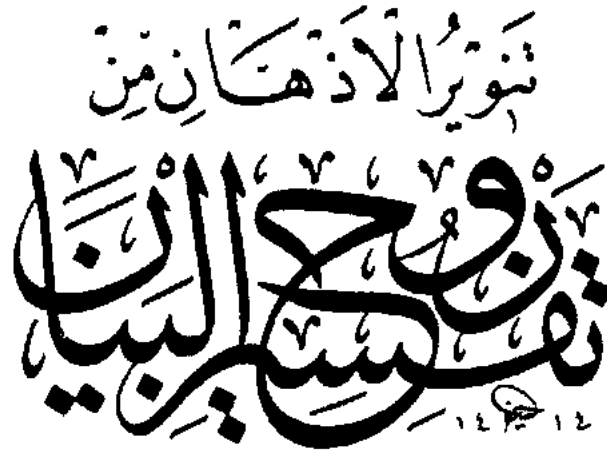 تَنْوِيرُ الْأَذْهَانِ مِنْ
تَفْسِيرِ رُوحِ الْبَيَانِ
١٤ ١٤